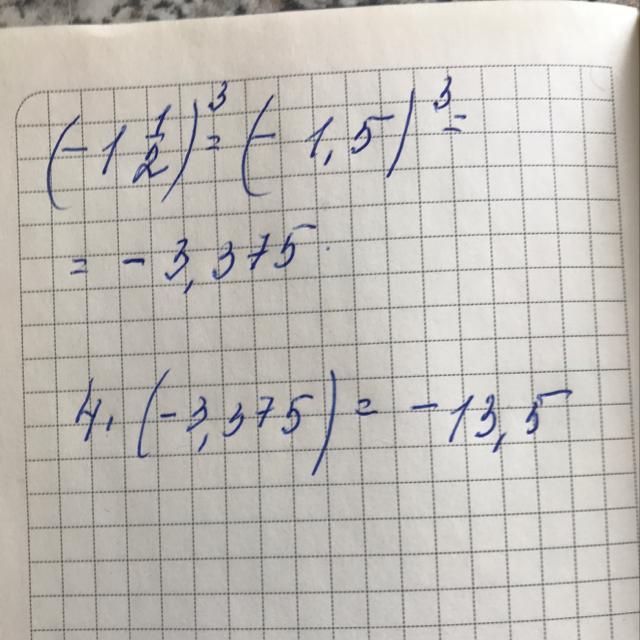 (-1 1/2)³ = (-1,5)³ =
= -3,375.
4. (-3,375) = -13,5